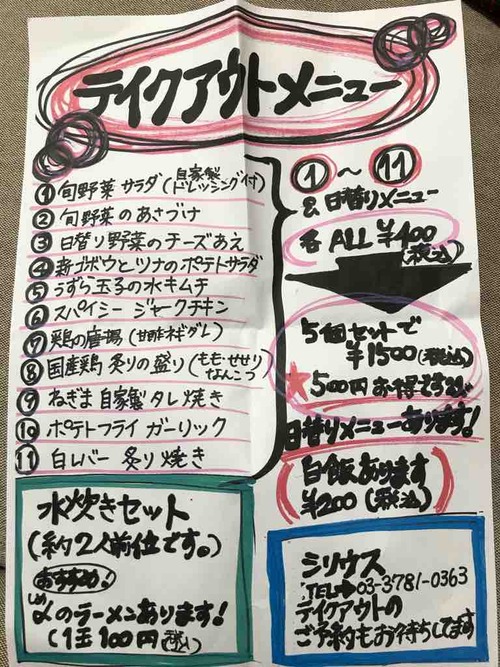 テイクアウトメニュー
① 旬野菜 サラダ (自家製ドレッシング付)
② 旬野菜のあさづけ
③ 日替り野菜のチーズあえ
④ 新ゴボウとツナのポテトサラダ
⑤ うずら玉子の水キムチ
⑥ スパイシー ジャークチキン
⑦ 鶏の唐揚 (甘酢ネギダレ)
⑧ 国産鶏 炙りの盛り (もも・せせり なんこつ)
⑨ ねぎま 自家製 タレ 焼き
⑩ ポテトフライ ガーリック
⑪ 白レバー 炙り焼き
① 〜 ⑪
& 日替りメニュー
各 ALL ¥400
(税込)
5個セットで
¥1500(税込)
★500円お得です
日替りメニューあります!
白飯あります
¥200 (税込)
水炊きセット
(約2人前位です。)
おすすめ!
〆のラーメンあります!
(1玉100円(税込)
シリウス
TEL→03-3781-0363
テイクアウトの
ご予約もお待ちしてます